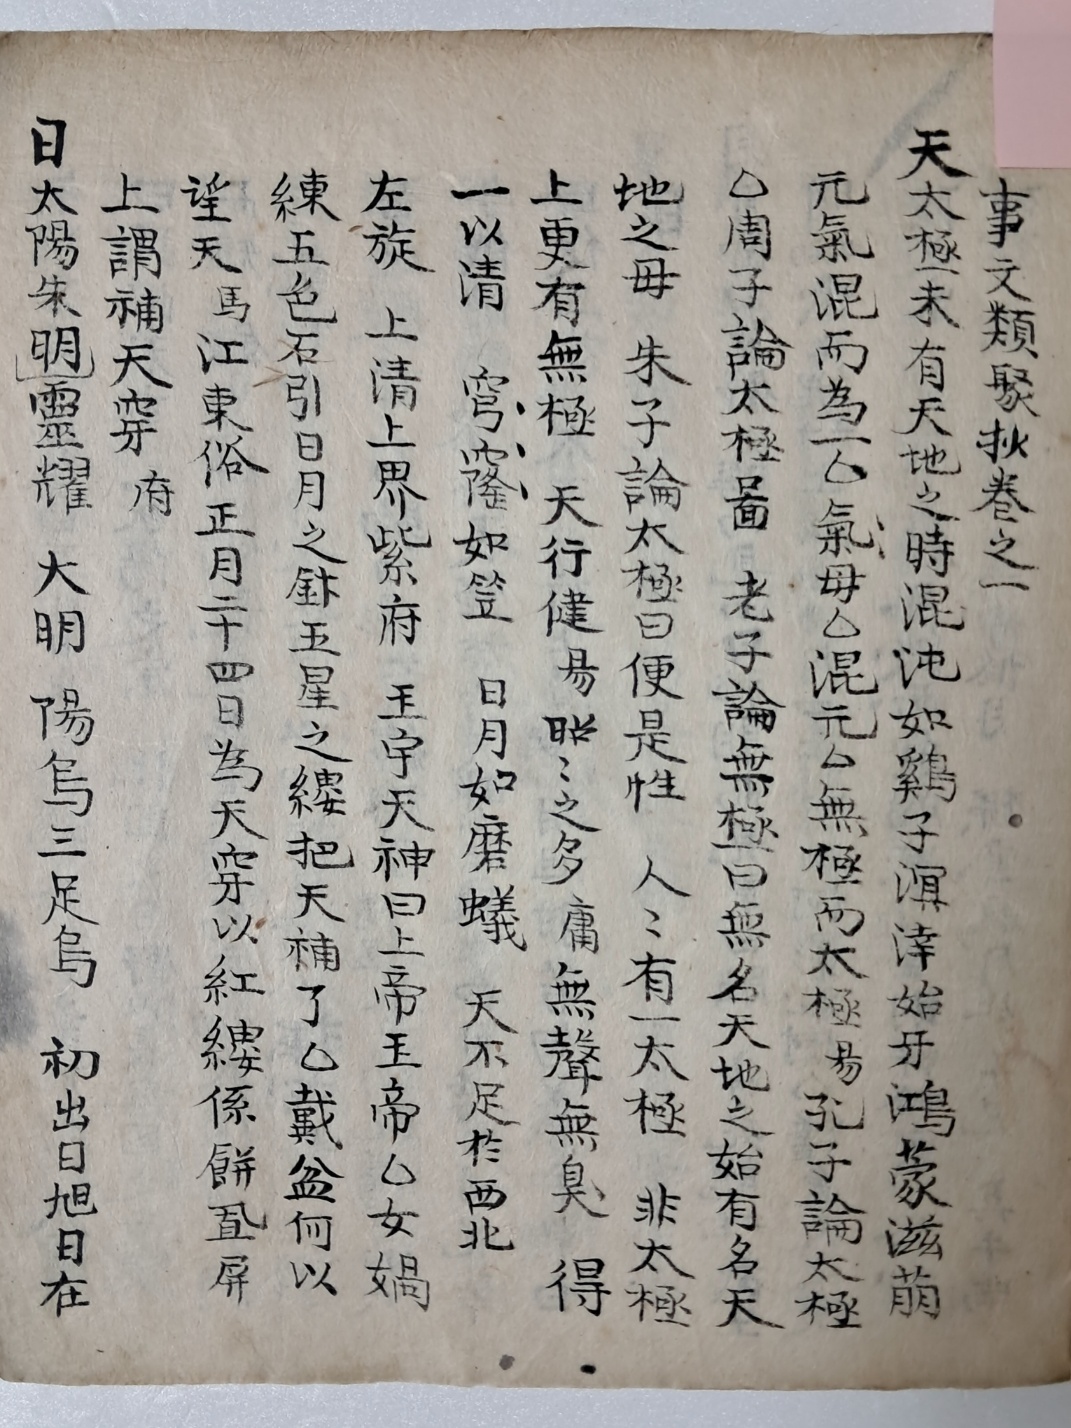 事文類聚抄卷之一
天 太極未有天地之時混沌如鷄子溟涬始牙鴻蒙滋萌
元氣混而為一乙氣母乙混元乙無極而太極易孔子論太極
乙周子論太極啚 老子論無極曰無名天地之始有名天
地之母 朱子論太極曰便是性 人〻有一太極 非太極
上更有無極 天行健易昭〻之多庸無聲無臭 得
一以清 穹窿如笠 日月如磨蟻 天不足於西北
左旋 上清上界紫府 玉宇天神曰上帝玉帝乙女媧
練五色石引日月之針五星之縷把天補了乙戴盆何以
望天馬江東俗正月二十四日為天穿以紅縷係餠置屏
上謂補天穿府
日 太陽朱明靈耀 大明 陽烏三足烏 初出日旭日在